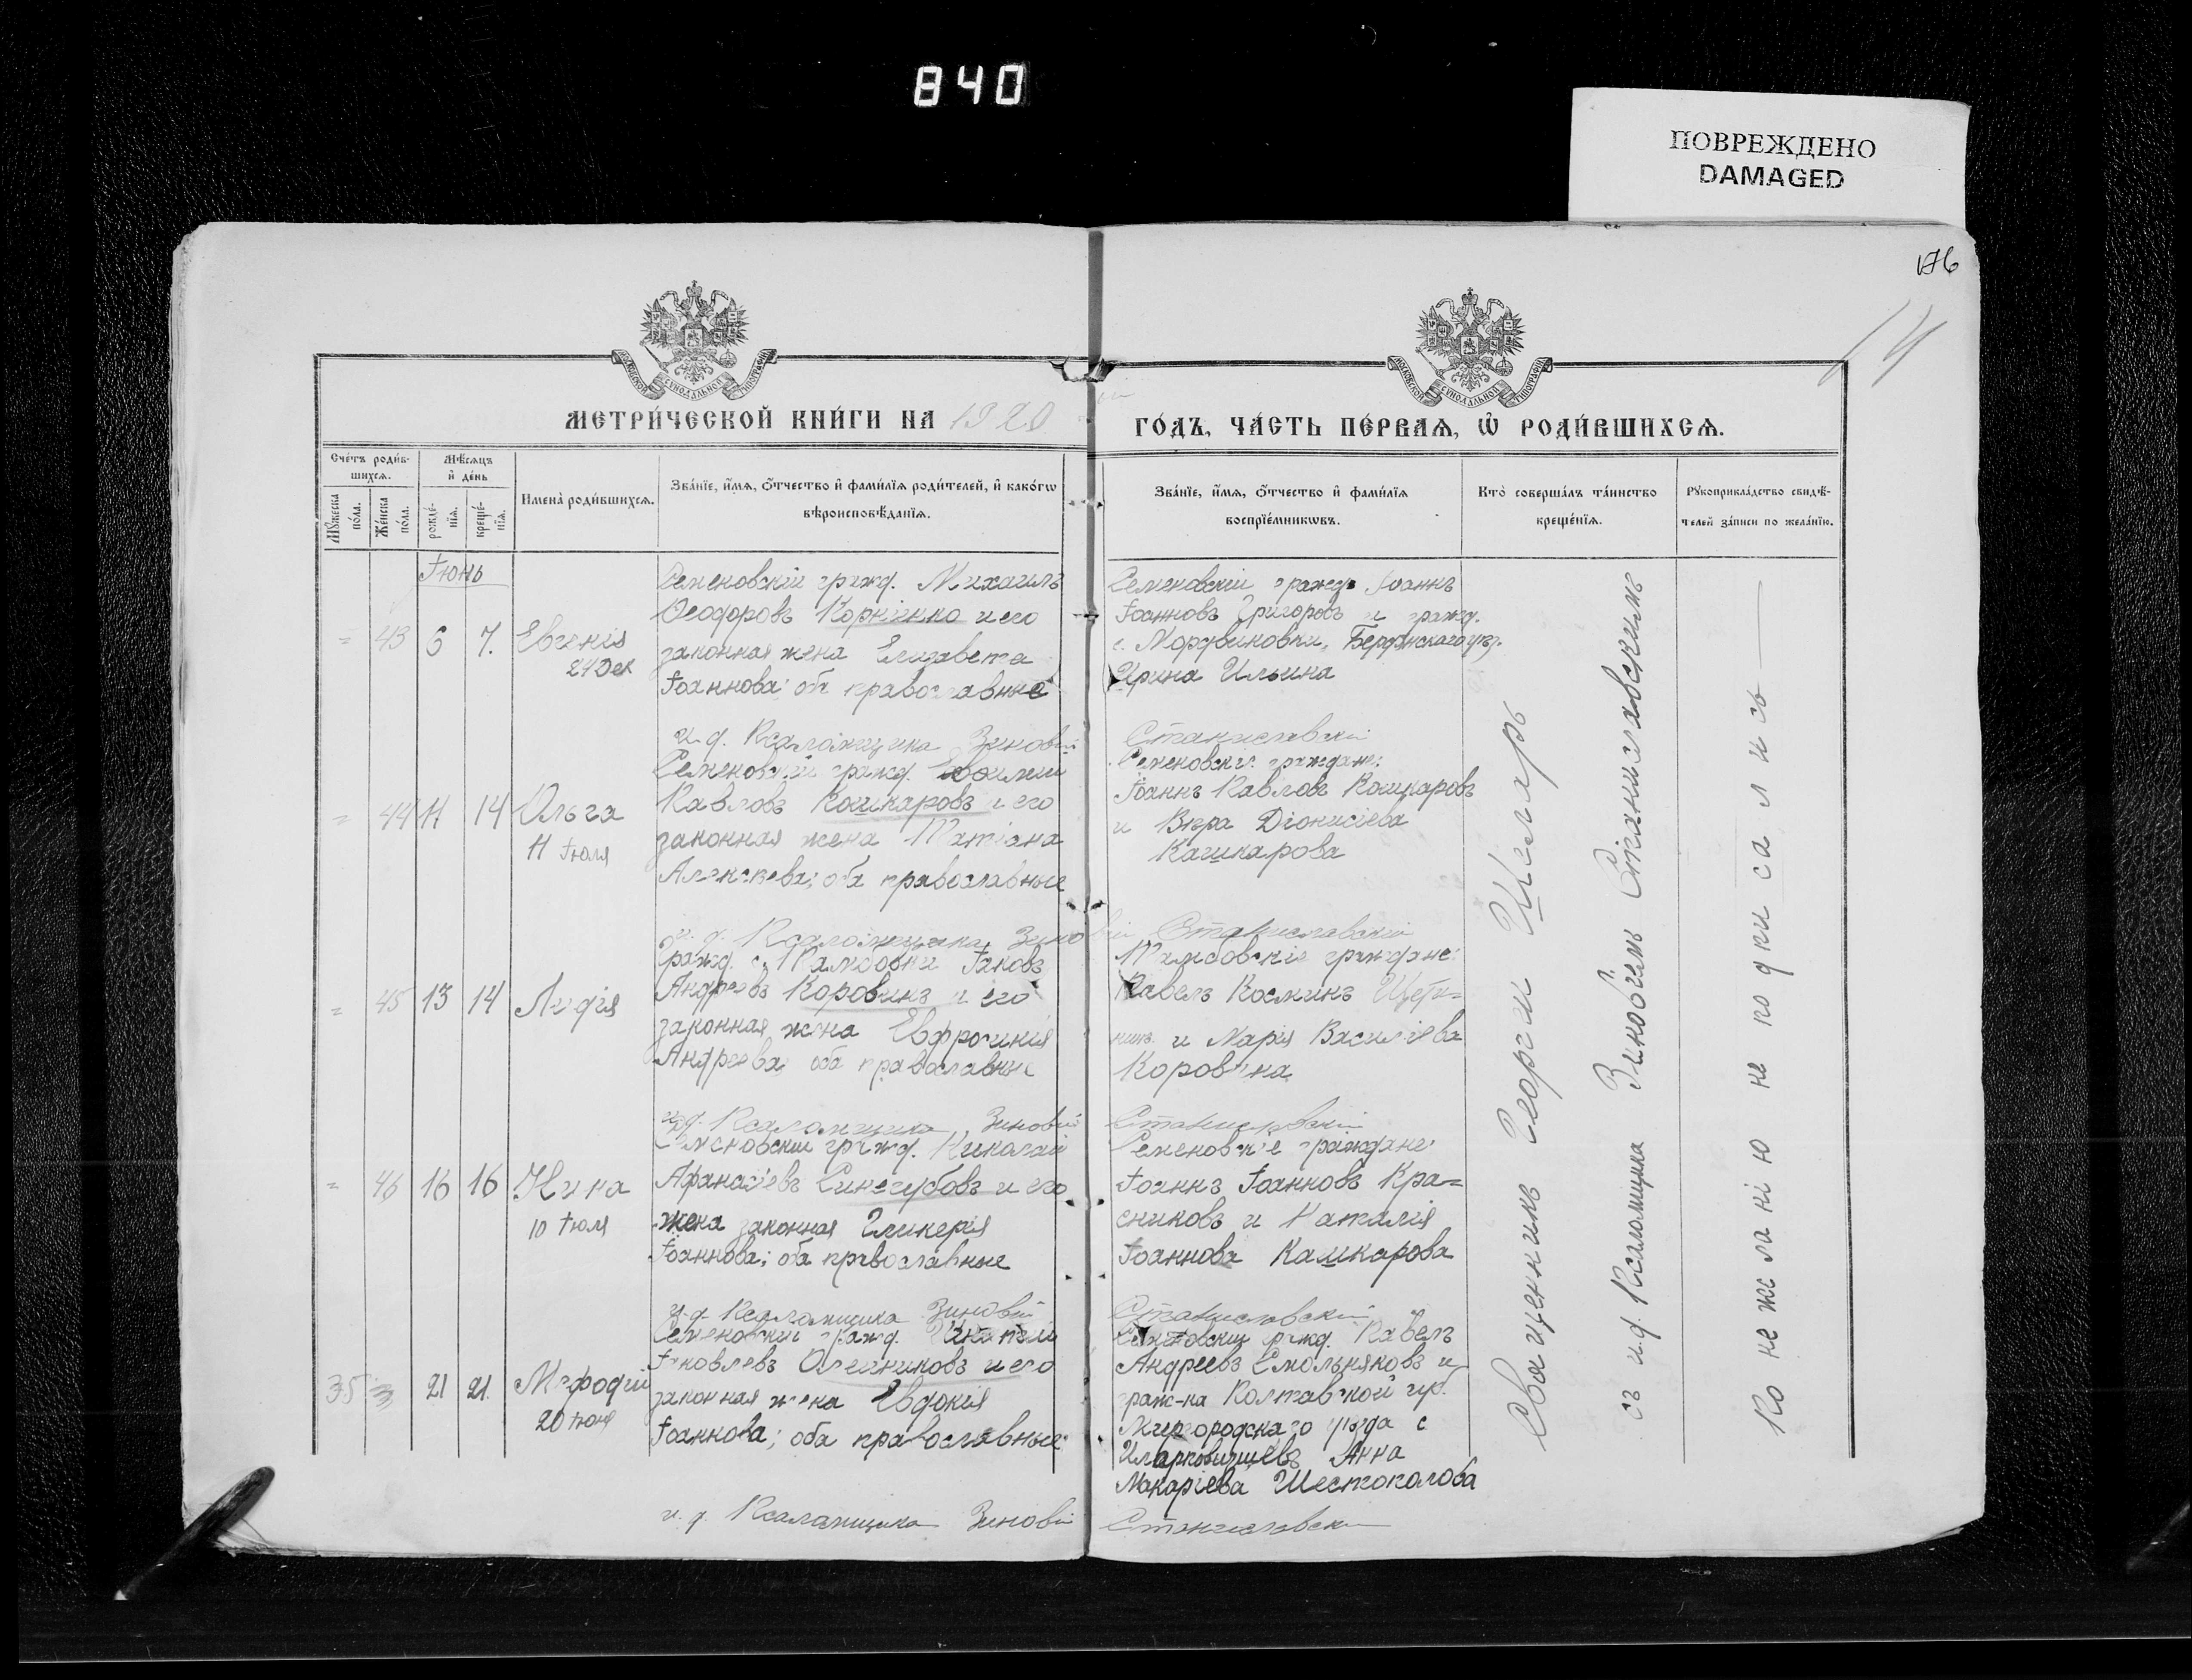 840
ПОВРЕЖДЕНО
DAMAGED
176
14
МЕТРИ́ЧЕСКОЙ КНИ́ГИ НА 1920
ГО́ДЪ, ЧА́СТЬ ПЕ́РВАЯ, Ѡ РОДИ́ВШИХСЯ.
Сче́тъ роди́в-
шихся.
Мѣ́сяцъ
и́ де́нь
Мꙋ́жеска
по́ла.
Же́нска
по́ла.
рожде́-
нїя.
креще́-
нїя.
Имена̀ роди́вшихся.
Зва́нїе, и́мя, ѻ́тчество и́ фами́лїя роди́телей, и́ како́гѡ
вѣроисповѣ́данїя.
Зва́нїе, и́мя, ѻ́тчество и́ фами́лїя
воспрїе́мникѡвъ.
Кто̀ соверша́лъ та́инство
креще́нїя.
Рꙋкоприкла́дство свидѣ́-
телей за́писи по жела́нїю.
Іюнь
= 43 6 7. Евгенія
24 Дек
Семеновскій гражд. Михаилъ
Ѳеодоровъ Корніенко и его
законная жена Елизавета
Іоаннова; оба православные
Семеновскій гражд. Іоаннъ
Іоанновъ Григоровъ и гражд.
с. Мордвиновки, Бердянскаго уѣз.
Ирина Ильина
и. д. Псаломщика Зиновій Станиславскій
= 44 11 14 Ольга
11 Іюля
Семеновскій гражд. Евѳимій
Павловъ Кошкаровъ и его
законная жена Татіана
Алексѣева; оба православные
Семеновскіе граждане:
Іоаннъ Павловъ Кошкаровъ
и Вѣра Діонисіева
Кашкарова
и. д. Псаломщика Зиновій Станиславскій
= 45 13 14 Лидія
Гражд. с. Тамбовки Іаковъ
Андреевъ Коровинъ и его
законная жена Евфросинія
Андреева; оба православные
Тамбовскіе граждане:
Павелъ Косминъ
и Марія Василіева
Коровина
и. д. Псаломщика Зиновій Станиславскій
= 46 16 16 Нина
10 Іюля
Семеновскій гражд. Николай
Афанасіевъ Синегубовъ и его
жена законная Гликерія
Іоаннова; оба православные
Семеновскіе граждане:
Іоаннъ Іоанновъ Кра=
сниковъ и Наталія
Іоаннова Кашкарова
и. д. Псаломщика Зиновій Станиславскій
35 = 21 21. Мефодій
20 Іюня
Семеновскій гражд.
Іаковлевъ Олейниковъ и его
законная жена Евдокія
Іоаннова; оба православные
Семеновскій гражд. Павелъ
Андреевъ Смольняковъ и
граж-ка Полтавской губ.
Миргородскаго уѣзда с
Анна
Макаріева Шестопалова
и. д. Псаломщика Зиновій Станиславскій
Священникъ Георгій Шеларь
съ и.д. Псаломщика Зиновіемъ Станиславскимъ
По нежеланію не подписались